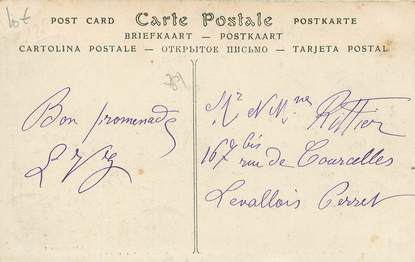 10€
POST CARD Carte Postale POSTKARTE
BRIEFKAART - POSTKAART
CARTOLINA POSTALE - ОТКРЫТОЕ ПИСЬМО - TARJETA POSTAL
Bon promenade
Mr & Mme
167 bis rue de Courcelles
Levallois Perret